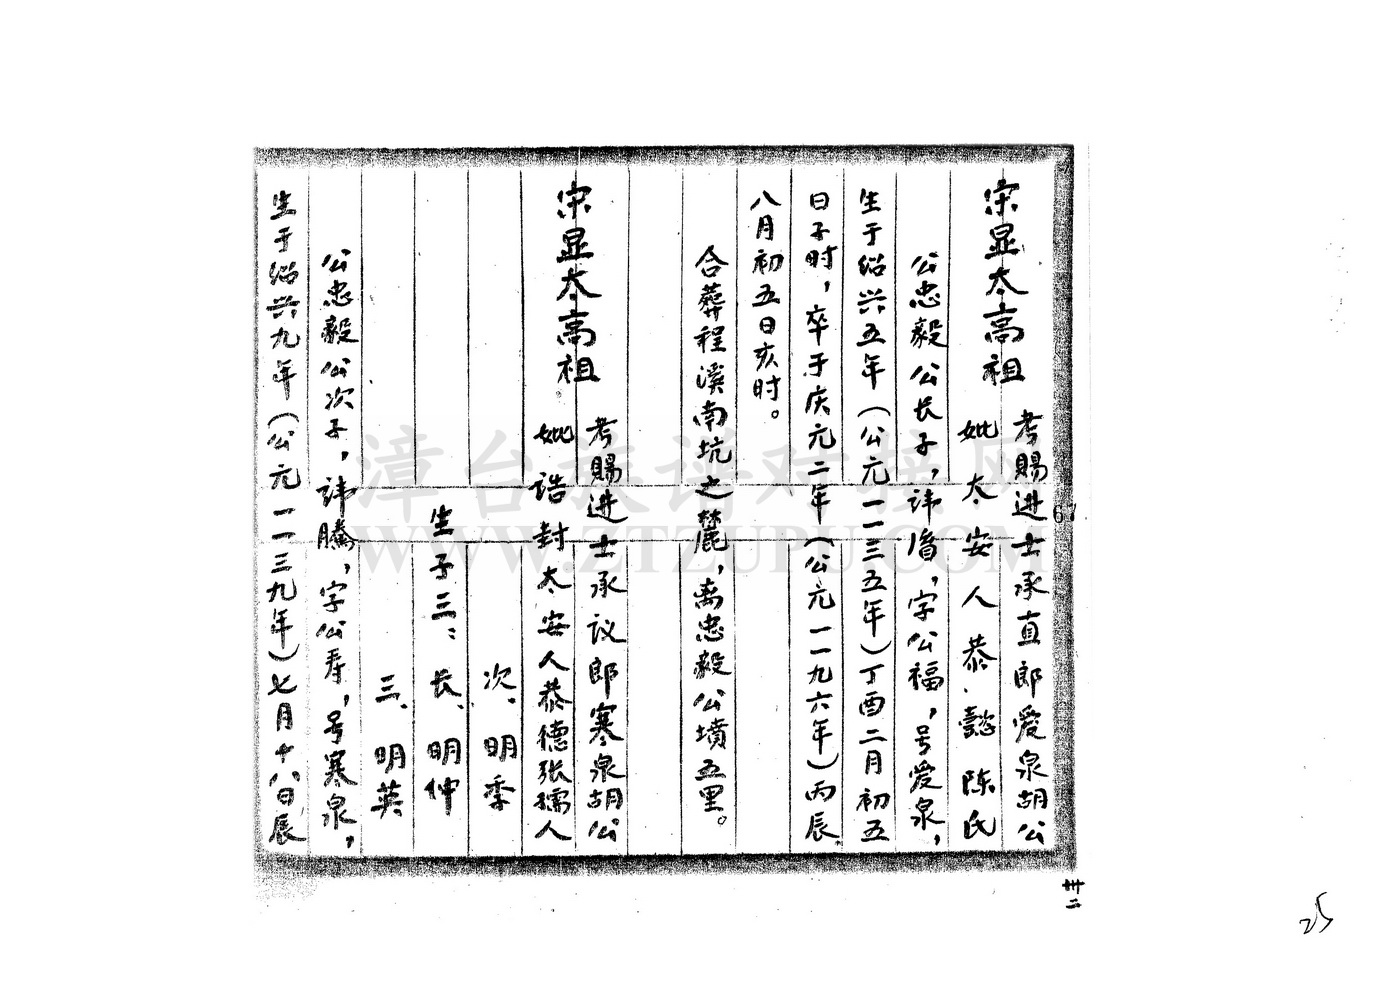 宗显太高祖
考赐进士承直郎爱泉胡公
妣太安人恭懿陈氏
公忠毅公长子，讳，字公福，号爱泉，
生于绍兴五年（公元一一三五年）丁酉二月初五
日子时，卒于庆元二年（公元一一九六年）丙辰
八月初五日亥时。
合葬程溪南坑之麓，离忠毅公墳五里。
宗显太高祖
考赐进士承议郎寒泉胡公
妣诰封太安人恭德张孺人
次、明季
生子三：长、明仲
三、明英
公忠毅公次子，讳騰，字公寿，号寒泉，
生于绍兴九年（公元一一三九年）七月十八日辰
67
卅二
25
漳台族谱对接网
WWW.ZTZUPU.COM